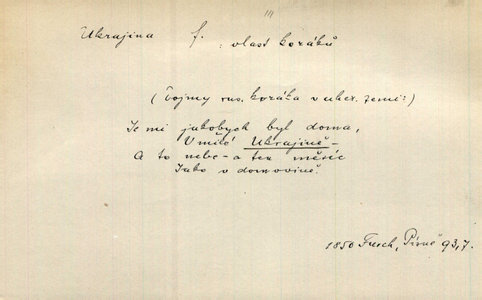 Ukrajina f. : vlast kozáků
(Dojmy rus. kozáka v uher. zemi:)
Je mi jakobych byl doma,
V milé Ukrajině –
A to nebe – a ten měsíc
Jako v domovině.
1850 Frič, Písně 93,7.